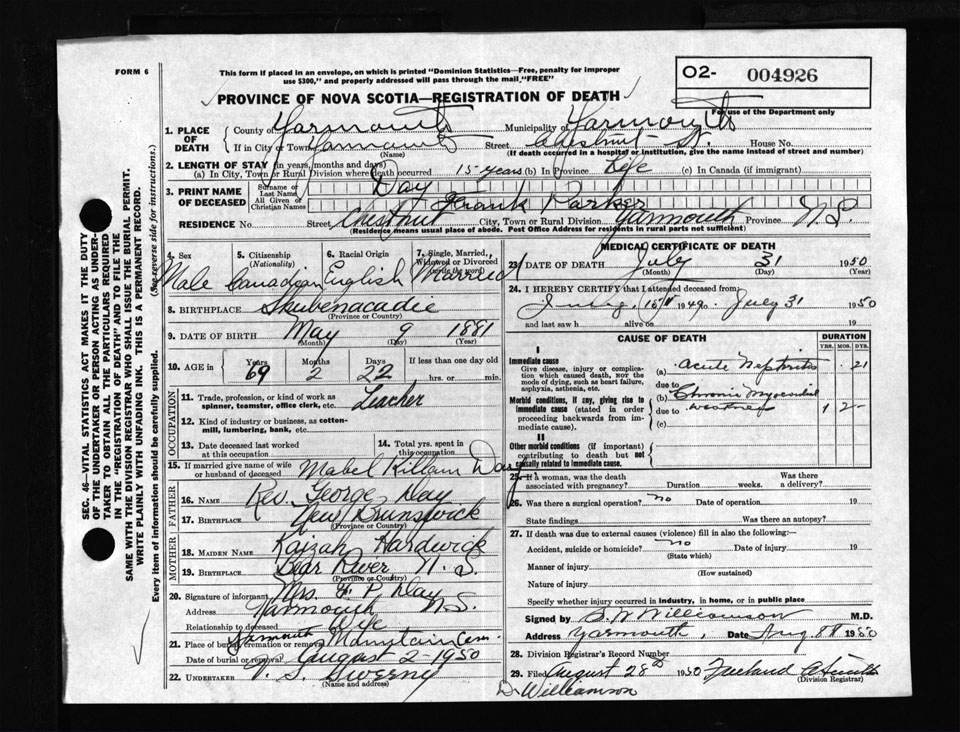 FORM 6
This form if placed in an envelope, on which is printed "Dominion Statistics—Free, penalty for improper
use $300," and properly addressed will pass through the mail "FREE"
O2- 004926
For use of the Department only
PROVINCE OF NOVA SCOTIA—REGISTRATION OF DEATH
1. PLACE OF DEATH
County of Yarmouth Municipality of Yarmouth
If in City or Town Yarmouth Street Chestnut St. House No.
(Name) (If death occurred in a hospital or institution, give the name instead of street and number)
2. LENGTH OF STAY (in years, months and days)
(a) In City, Town or Rural Division where death occurred 15 years (b) In Province Life (c) In Canada (if immigrant)
3. PRINT NAME OF DECEASED
Surname or Last Name Day
All Given or Christian Names Frank Parker
RESIDENCE No. Street Chestnut City, Town or Rural Division Yarmouth Province N.S.
(Residence means usual place of abode. Post Office Address for residents in rural parts not sufficient)
4. Sex Male
5. Citizenship (Nationality) Canadian
6. Racial Origin English
7. Single, Married, Widowed or Divorced (write the word) Married
8. BIRTHPLACE Shubenacadie
(Province or Country)
9. DATE OF BIRTH May 9 1881
(Month) (Day) (Year)
10. AGE in Years 69 Months 2 Days 22 If less than one day old
hrs. or min.
OCCUPATION
11. Trade, profession, or kind of work as spinner, teamster, office clerk, etc. Teacher
12. Kind of industry or business, as cotton-mill, lumbering, bank, etc.
13. Date deceased last worked at this occupation
14. Total yrs. spent in this occupation
15. If married give name of wife or husband of deceased Mabel Killam Day
FATHER
16. NAME Rev. George Day
17. BIRTHPLACE New Brunswick
(Province or Country)
MOTHER
18. MAIDEN NAME Hardwick
19. BIRTHPLACE Bear River N.S.
(Province or Country)
20. Signature of informant Mrs. F P Day
Address Yarmouth N.S.
Relationship to deceased Wife
21. Place of burial, cremation or removal Yarmouth Mountain Cem.
Date of burial or removal August 2 1950
22. UNDERTAKER V. S. Sweeny
(Name and address)
MEDICAL CERTIFICATE OF DEATH
23. DATE OF DEATH July 31 1950
(Month) (Day) (Year)
24. I HEREBY CERTIFY that I attended deceased from:
1949 July 31 1950
and last saw h alive on 19
CAUSE OF DEATH
DURATION
YRS. MOS. DYS.
I
Immediate cause
Give disease, injury or complication which caused death, NOT the mode of dying, such as heart failure, asphyxia, asthenia, etc.
(a) Acute Nephritis 21
due to
Morbid conditions, if any, giving rise to immediate cause (stated in order proceeding backwards from immediate cause).
(b) Chronic Myocardial
due to 1 2
(c)
II
Other morbid conditions (if important) contributing to death but not causally related to immediate cause.
25. If a woman, was the death associated with pregnancy? Duration weeks. Was there a delivery?
26. Was there a surgical operation? no Date of operation 19
State findings Was there an autopsy?
27. If death was due to external causes (violence) fill in also the following:
Accident, suicide or homicide? no Date of injury 19
(State which)
Manner of injury
(How sustained)
Nature of injury
Specify whether injury occurred in industry, in home, or in public place
Signed by S. W Williamson M.D.
Address Yarmouth, Date Aug. 8th 1950
28. Division Registrar's Record Number
29. Filed August 28th 1950
(Division Registrar)
D. Williamson
SEC. 46—VITAL STATISTICS ACT MAKES IT THE DUTY
OF THE UNDERTAKER OR PERSON ACTING AS UNDER-
TAKER TO OBTAIN ALL THE PARTICULARS REQUIRED
IN THE "REGISTRATION OF DEATH" AND TO FILE THE
SAME WITH THE DIVISION REGISTRAR WHO SHALL ISSUE THE BURIAL PERMIT.
WRITE PLAINLY WITH UNFADING INK. THIS IS A PERMANENT RECORD.
Every item of information should be carefully supplied. (See reverse side for instructions.)